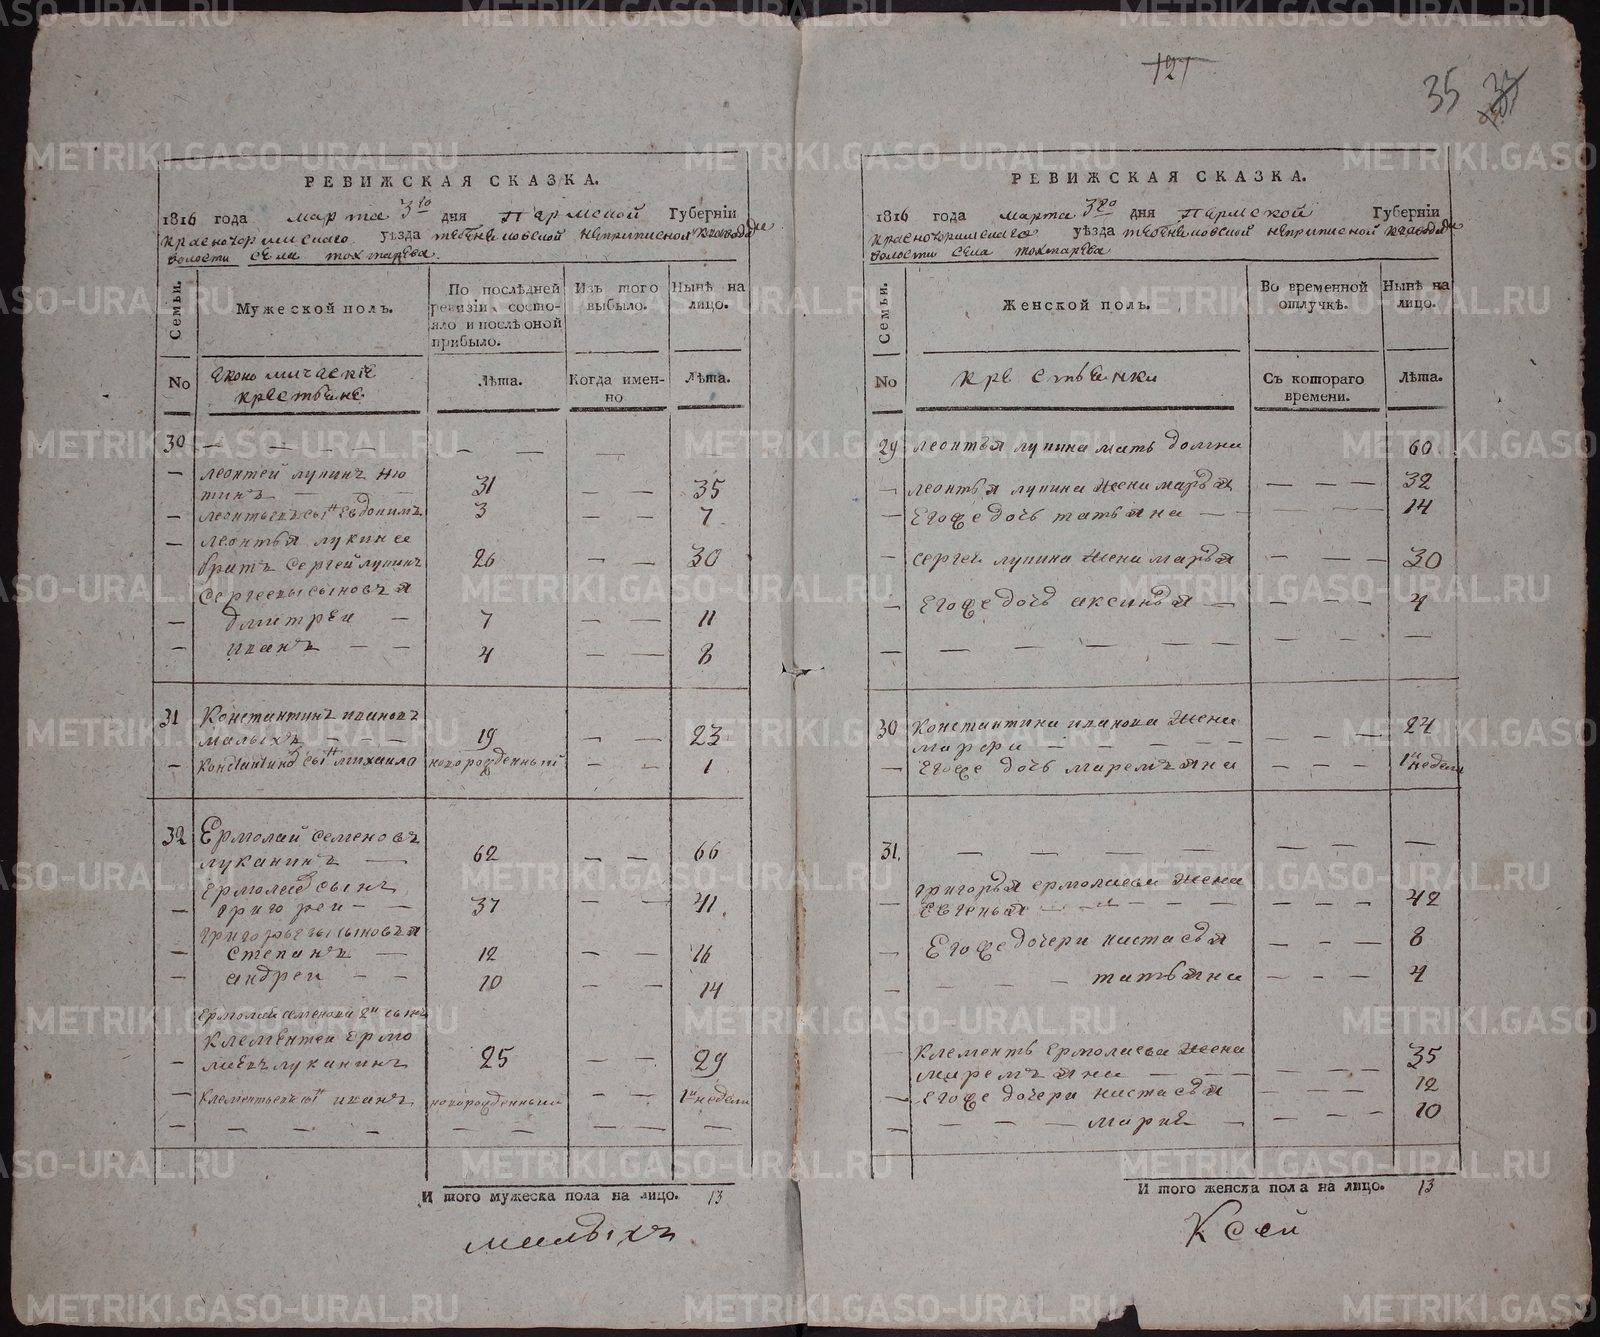 121
35 37
РЕВИЖСКАЯ СКАЗКА.
1816 года марта 3го дня Пермской Губерніи
красноуфимскаго уѣзда
волости села тохтарева
Семьи.
Мужеской полъ.
По послѣдней ревизіи состо-
яло и послѣ оной
прибыло.
Изъ того
выбыло.
Нынѣ на
лицо.
No
Экономическіе
крестьяне.
Лѣта.
Когда имен-
но
Лѣта.
30 — — — —
леонтей лукинъ 
31 — — 35
леонтьевъ сынъ евдокимъ 3 — — 7
леонтья лукина
братъ сергей лукинъ 26 — — 30
сергеевы сыновья
дмитреи — 7 — — 11
иванъ — — 4 — — 8
31 Константинъ ивановъ
малыхъ — — — 19 — — 23
константиновъ сынъ михаило новорожденный — — 1
32 Ермолай семеновъ
луканинъ — 62 — — 66
ермолаевъ сынъ
григореи — — 37 — — 41
григорьевы сыновья
степанъ — 12 — — 16
андреи — — 10 — — 14
ермолая семенова 2й сынъ
клементеи ермо
лаевъ луканинъ 25 — — 29
клементьевъ сынъ иванъ новорожденный — — 1 недели
— — — — — — — — —
И того мужеска пола на лицо. 13
малыхъ
РЕВИЖСКАЯ СКАЗКА.
1816 года марта 3го дня Пермской Губерніи
красноуфимскаго уѣзда
волости села тохтарева
Семьи.
Женской полъ.
Во временной
отлучкѣ.
Нынѣ на
лицо.
No
крестьянки
Съ котораго
времени.
Лѣта.
29 леонтья лукина мать 60
леонтья лукина жена марья — — — 32
Его же дочь татьяна — — — — 14
сергея лукина жена марья — — — 30
Его же дочь аксинья — — — — 4
— — — — — — — — — —
30 константина иванова жена
марфа — — — — — — — 24
Его же дочь маремьяна — — — 1 недели
31. — — — — — — — —
григорья ермолаева жена
евгенья — — — — — — 42
Его же дочери настасья — — — 8
татьяна — — — 4
клементья ермолаева жена
маремьяна — — — — — 35
Его же дочери настасья — — — 12
марья — — — — 10
И того женска пола на лицо. 13